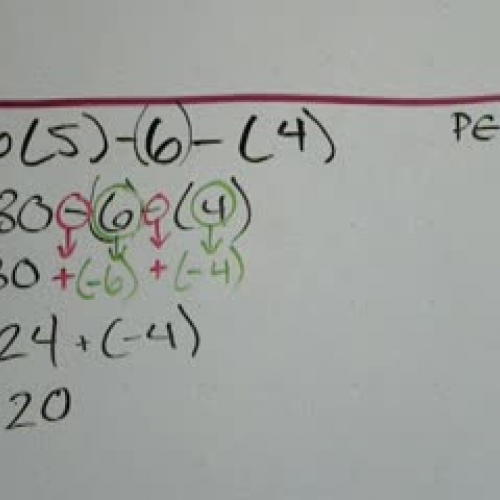 6(5)-(6)-(4)
30-(6)-(4)
30+(-6)+(-4)
24+(-4)
20
PE